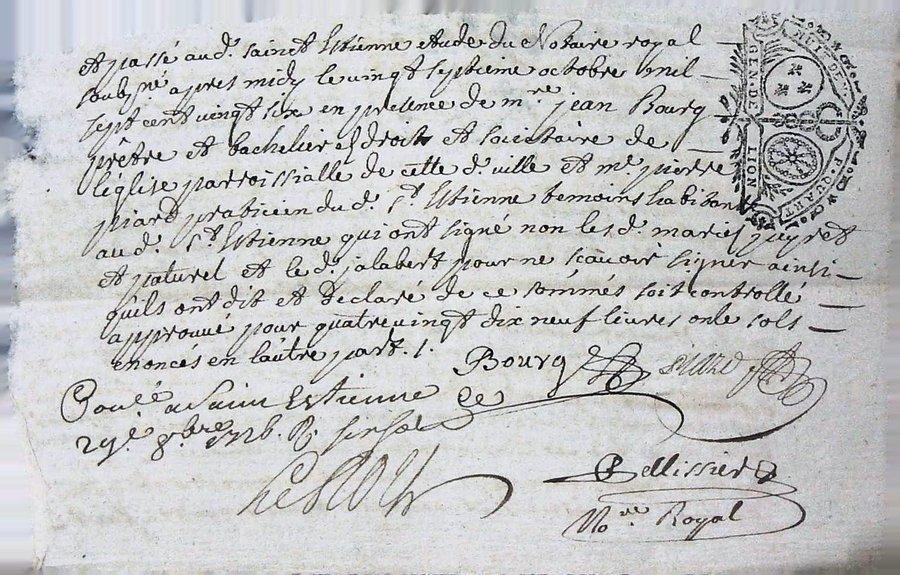 et passé aud. sainct Estienne etude du Notaire royal
soubzné apres midy le vingt septieme octobre mil
sept cent vingt six en presence de mre jean Bourg
prêtre et bachelier es droits et societaire de
l'église parroissialle de cette d. ville et me pierre
piard praticien du d. St Estienne temoins habitants
au d. St Estienne qui ont signé non les d. maries peyret
et paturel et le d. jalabert pour ne scavoir signer ainsi
quils ont dit et declaré de ce sommés soit controllé
approuvé pour quatre vingt dix neuf livres onse sols
enoncés en lautre part.
Bourg piard
Conlé a Saint Estienne le
29e. 8bre 1726. R.
Pellissier
Nore Royal
GEN. DE LION